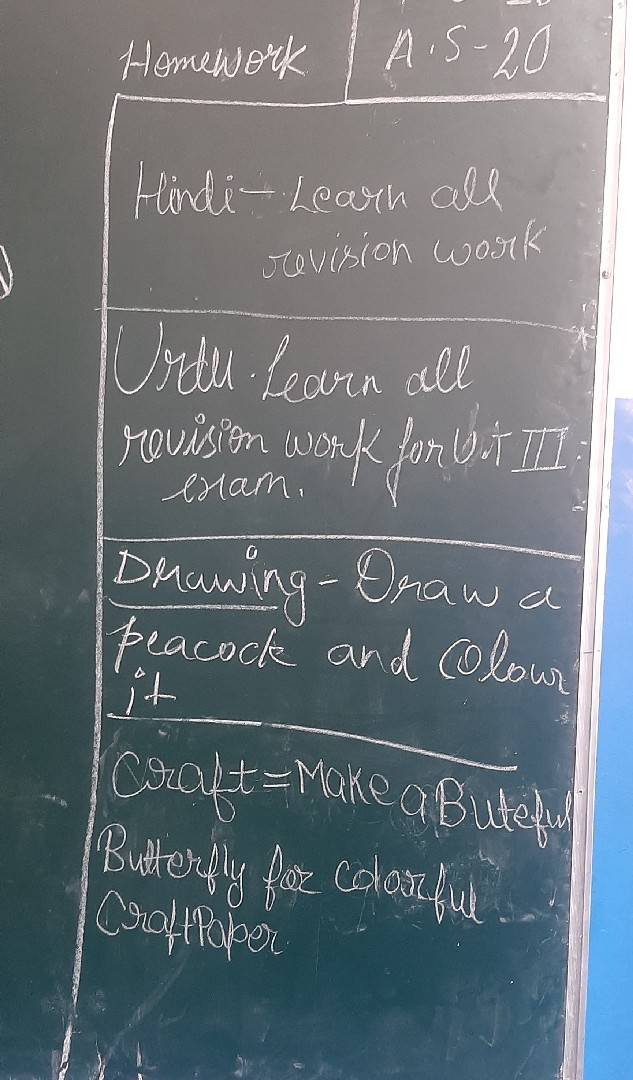 Homework
A.S-20
Hindi - Learn all
revision work
Urdu. Learn all
revision work for U.T III.
exam.
Drawing - Draw a
peacock and colour
it
Craft = Make a Buteful
Butterfly for colorful
Craft Paper